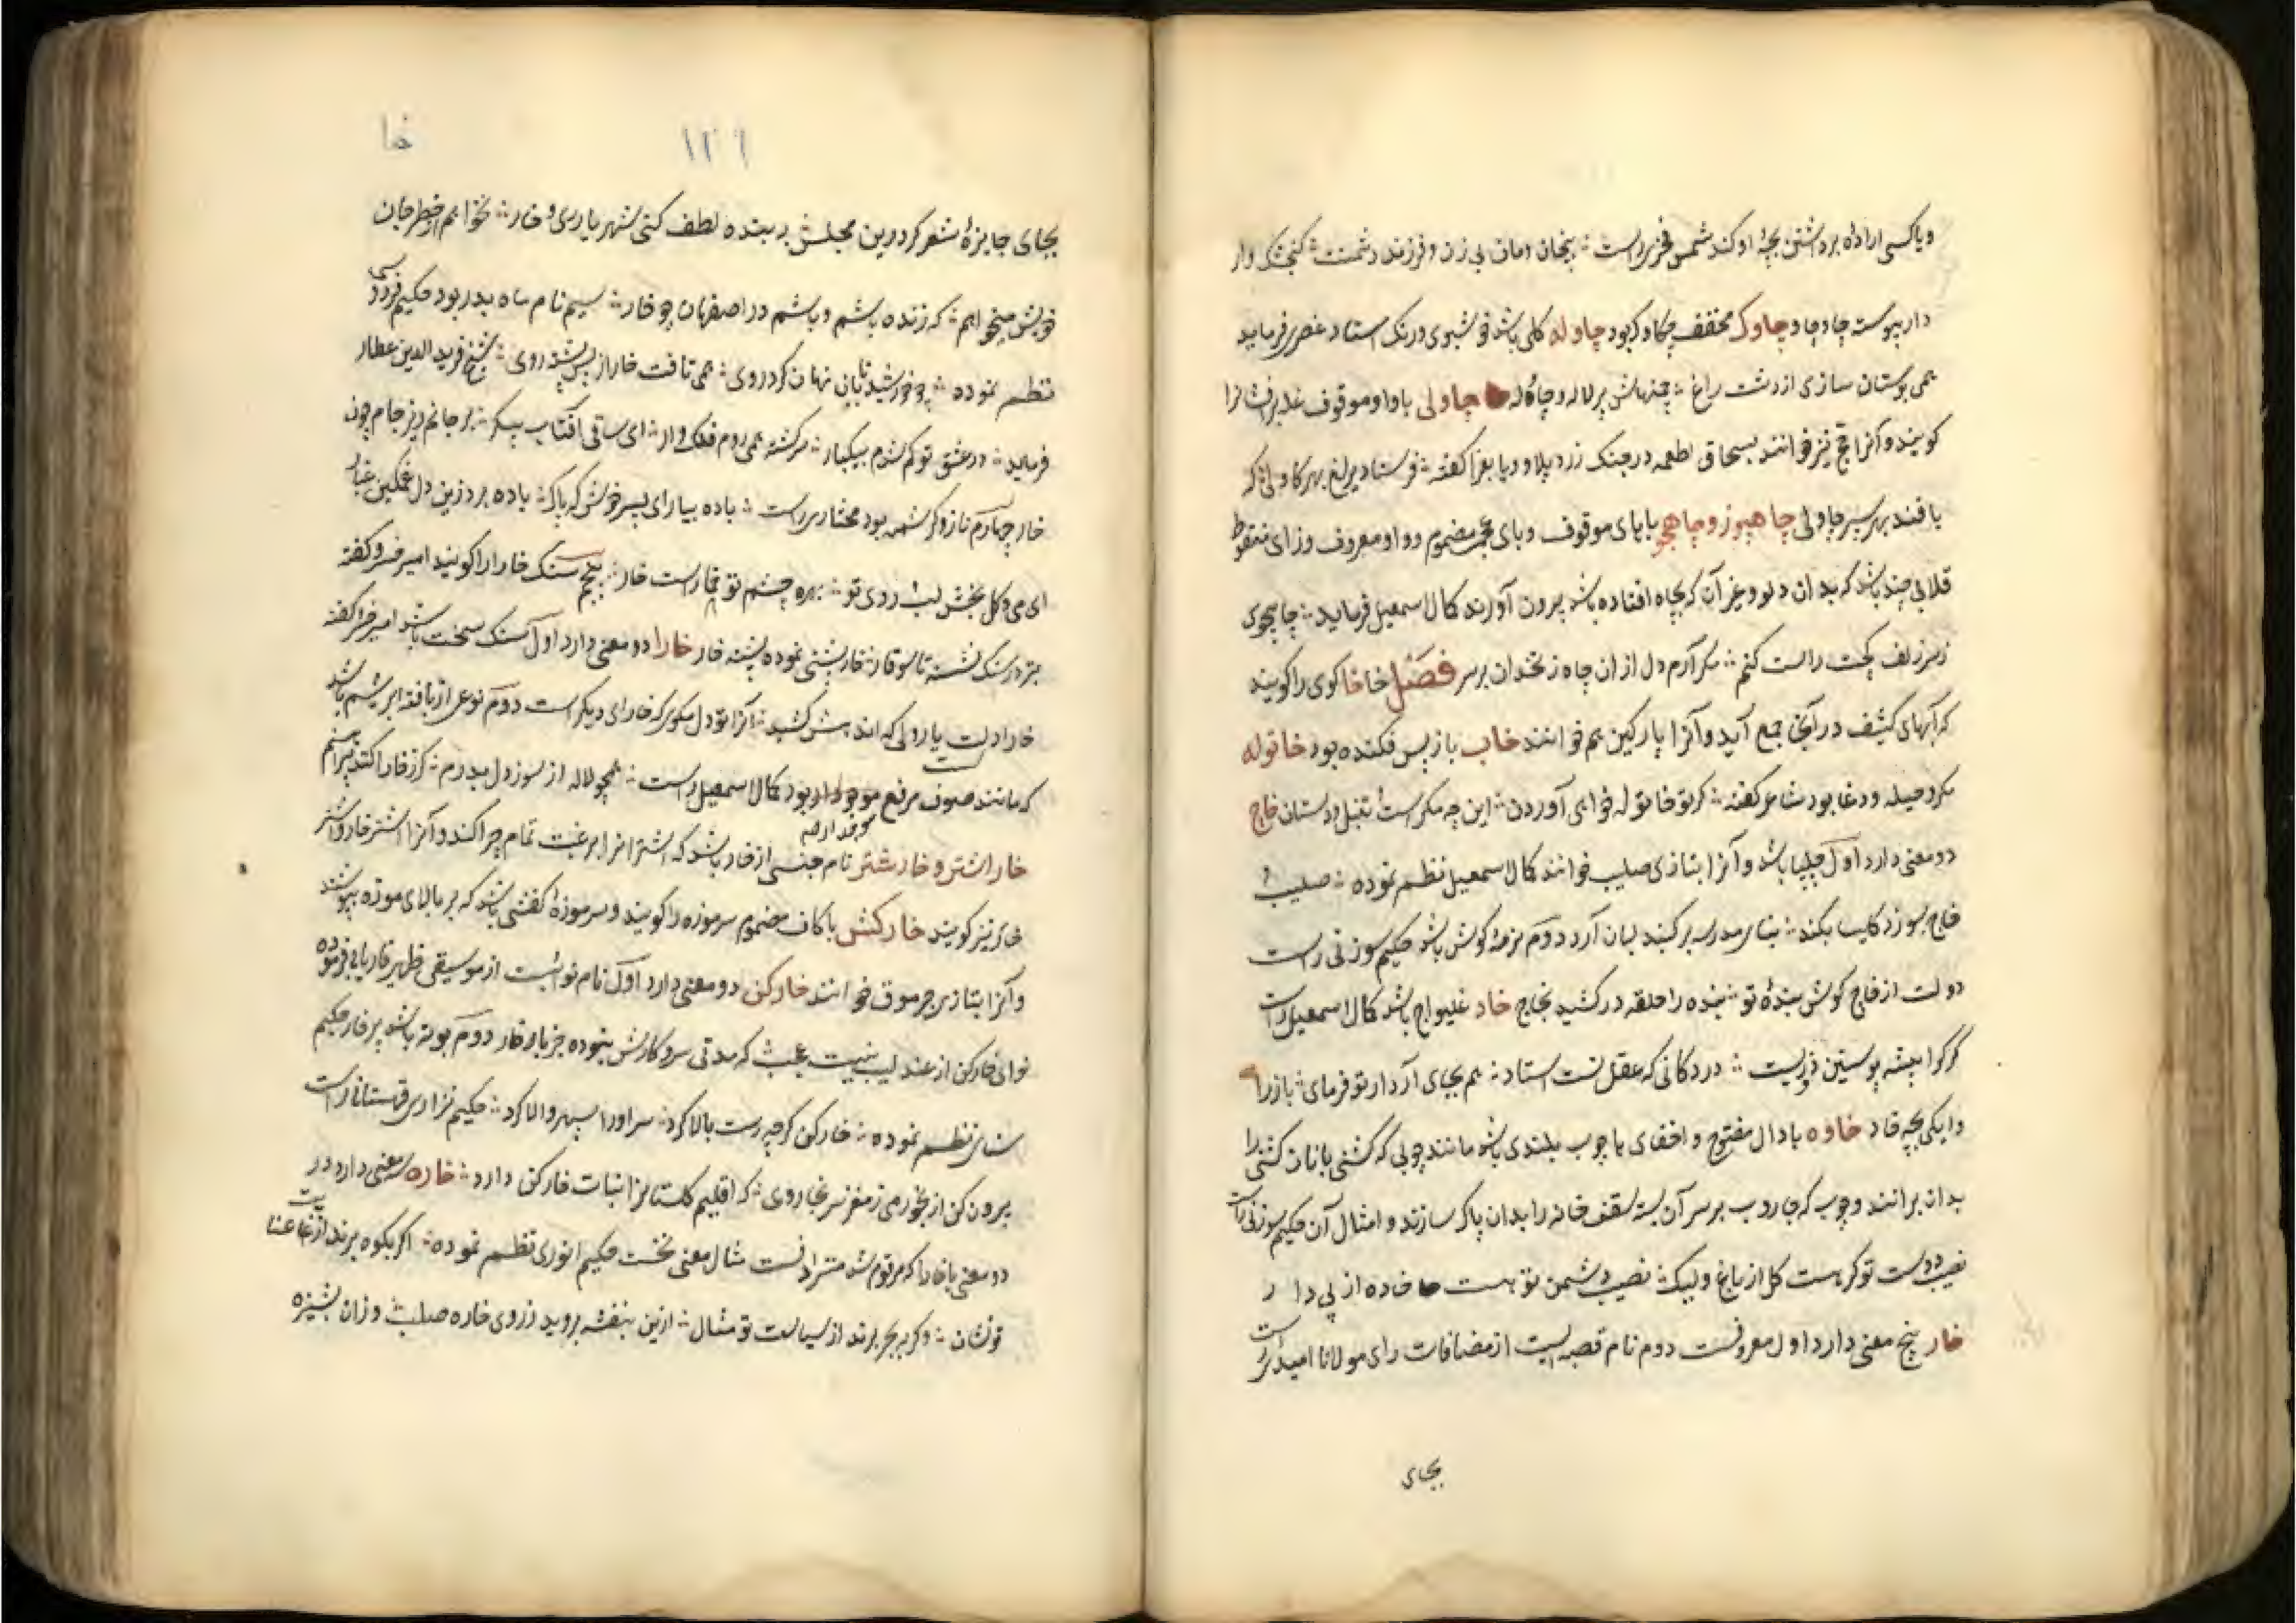 ویا کسی اراده برداشتن بچهٔ او کند شمس فخری راست ؞ بی زن و فرزند دشمنت ؞ کنجشک وار
دار پیوسته چاوچاو چاوک مخفف چکاوک بود چاوله کلی باشد خوشبوی و رنک استاد عنصری فرماید
همی بوستان سازی از دشت راغ ؞ چمنهاش پر لاله و چاوله چاولی با واو موقوف غله برافشانرا
کویند و آنرا چج نیز خوانند بسحاق اطعمه در جنک زرد پلاو و با بغرا کفته ؞ فرستاد یرلیغ بهر کاولی ؞ که
بافند بهر سپر چاولی چاهیوز و چاهجو بایای موقوف و بای عجمی مضموم و واو معروف و زای منقوط
قلابی چند باشد که بدان دلو و غیر آن که بچاه افتاده باشد بیرون آورند کمال اسمعیل فرماید ؞ چاهجوی
زسر زلف کجت راست کنم ؞ مکر آرم دل از ان چاه زنخدان بر سر فصل خا خا کوی را کویند
که آبهای کثیف در آنجا جمع آید و آنرا پارکین هم خوانند خاب باز پس فکنده بود خاتوله
مکر و حیله و دغا بود شاعر کفته ؞ کر تو خاتوله خواهی آوردن ؞ این چه مکر است تنبل و دستان خاج
دو معنی دارد اول چلیپا باشد و آنرا بتازی صلیب خوانند کمال اسمعیل نظم نموده ؞ صلیب و
خاج بسوزد کلیسا بکند ؞ بنای مدرسه بر کنبد لسان آرد دوم نرمهٔ کوش باشد حکیم سوزنی راست
دولت از خاج کوش بندهٔ تو ؞ بنده را حلقه در کشید بخاج خاد غلیواج باشد کمال اسمعیل راست
کرکرا پیشه پوستین دوزیست ؞ در دکانی که عقل تست استاد ؞ هم بجای آرد ار تو فرمای ؞ باز را
دایکی بچه خاد خاده بادال مفتوح و اخفای ها چوب بلندی باشد مانند چوبی که کشتی بانان کشتی را
بدان برانند و چوبی که جاروب بر سر آن بسته سقف خانه را بدان پاک سازند و امثال آن حکیم سوزنی راست
نصیب دوست تو کر هست کل از باغ ولیک ؞ نصیب دشمن تو هست خاده از پی دار
خار پنج معنی دارد اول معروفست دوم نام قصبه ایست از مضافات رای مولانا امیدی راست
بجای
خا
۱۲۶
بجای جایزهٔ شعر کر درین مجلس ؞ ببنده لطف کنی شهریاری و خار ؞ نخواهم از خطر جان
خویش میخواهم ؞ که زنده باشم و باشم در اصفهان چو خار ؞ سیم نام ماه بدر بود حکیم فردوسی
نظم نموده ؞ چو خورشید تابان نهان کرد روی ؞ همی تافت خار از پس پشت روی ؞ شیخ فرید الدین عطار
فرماید ؞ در عشق تو کم شدم بیکبار ؞ سرکشته همی روم فلک وار ؞ ای ساقی آفتاب پیکر ؞ بر جانم ریز جام چون
خار چهارم ناز و کرشمه بود مختاری راست ؞ باده بیار ای پسر خوش که پاک ؞ باده برد زین دل غمکین غبار
ای می و کل بخش لب و روی تو ؞ بهره چشم تو خمارست خار ؞ پنجم سنک خارا را کویند امیر خسرو کفته
بزد در سنک نشسته تا سوفار ؞ خار پشتی نموده پشته خار خارا دو معنی دارد اول سنک سخت باشد امیر خسرو کفته
خارا دلست یار ولی که اندهش کشید ؞ آنرا تو دل مکوی که خارای دیکر است دوم نوعی از بافته ابریشم باشد
که مانند صوف مربع موجدار بود کمال اسمعیل راست ؞ همچو لاله از سوز دل بدرم ؞ کر ز خارا کنند پیراهنم
موجدار صه
خار اشتر و خار شتر نام جنسی از خار باشد که اشتر انرا برغبت تمام چرا کند و آنرا اشتر خار و اشتر
خای نیز کویند خارکش باکاف مضموم سرموزه را کویند و سرموزه کفشی باشد که بر بالای موزه بپوشند
و آنرا بتازی جرموق خوانند خارکن دو معنی دارد اول نام نوائیست از موسیقی ظهیر فاریابی فرموده
نوای خارکن از عندلیب نیست عجب که مدتی سر و کارش نبوده جز با خار دوم بوته باشد پر خار حکیم
سنائی نظم نموده ؞ خارکن کرچه رست بالا کرد ؞ سر او را سپهر والا کرد ؞ حکیم نزاری قهستانی راست
برون کن از بخور می ز مغز سر غبار روی ؞ که اقلیم کلستانرا نبات خارکن دارد ؞ خاره سه معنی دارد در
دو معنی با خارا که مرقوم شد مترادفست مثال معنی نخست حکیم انوری نظم نموده ؞ اکر بکوه برند از عنایت
تو نشان ؞ و کر به بحر برند از سیاست تو مثال ؞ ازین بنفشه بروید ز روی خاره صلب ؞ وزان پشیزه